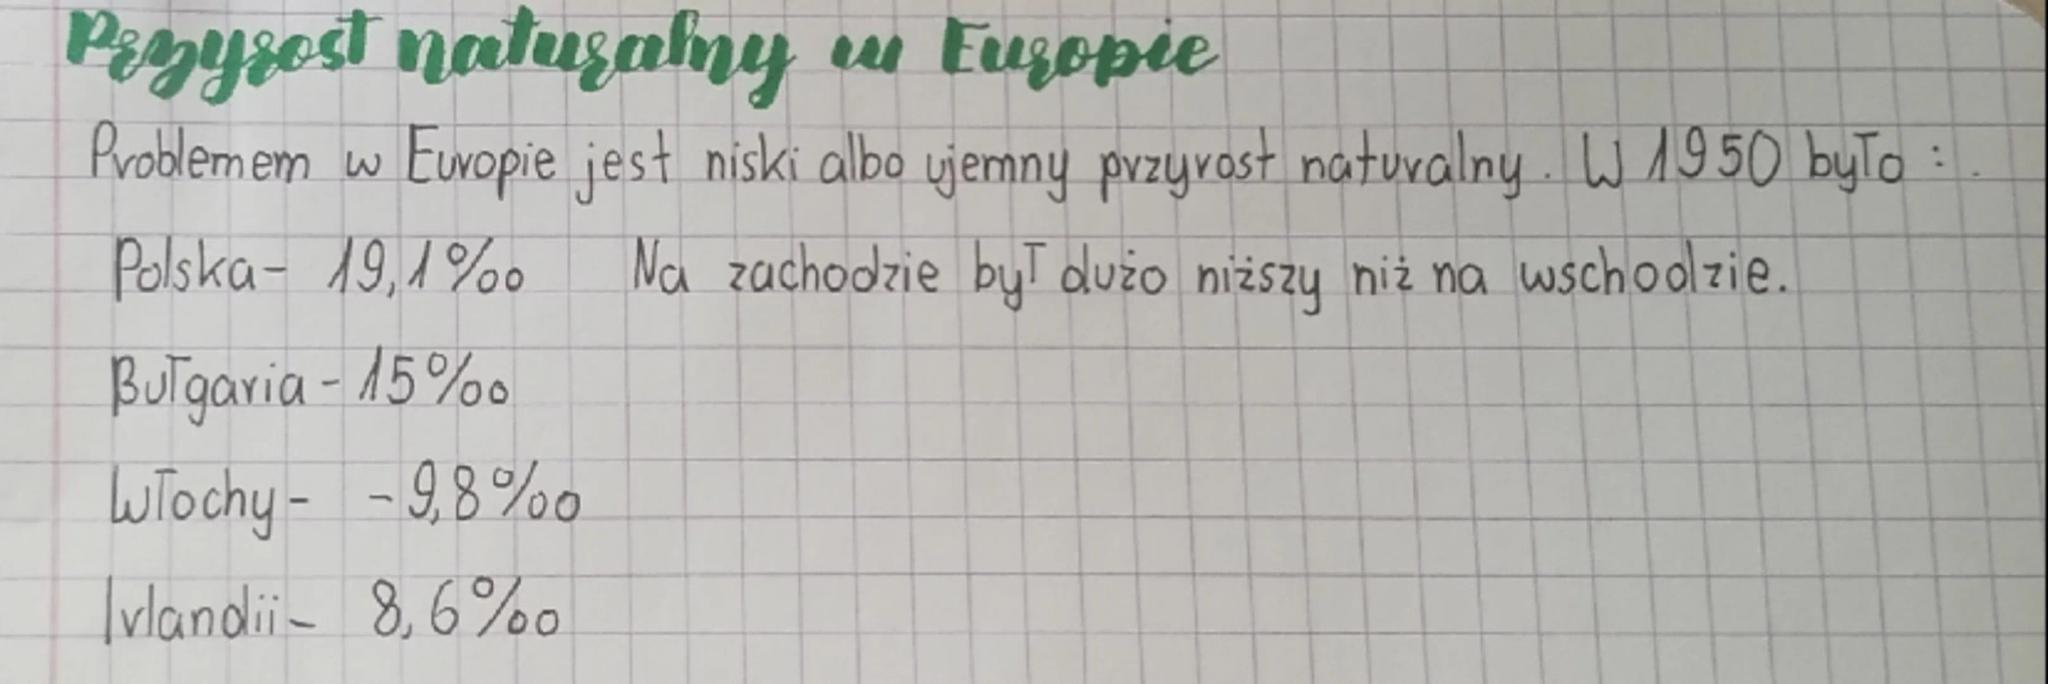 Przyrost naturalny w Europie
Problemem w Europie jest niski albo ujemny przyrost naturalny. W 1950 było :.
Polska- 19,1‰ Na zachodzie był dużo niższy niż na wschodzie.
Bułgaria - 15‰
Włochy- -9,8‰
Irlandii- 8,6‰